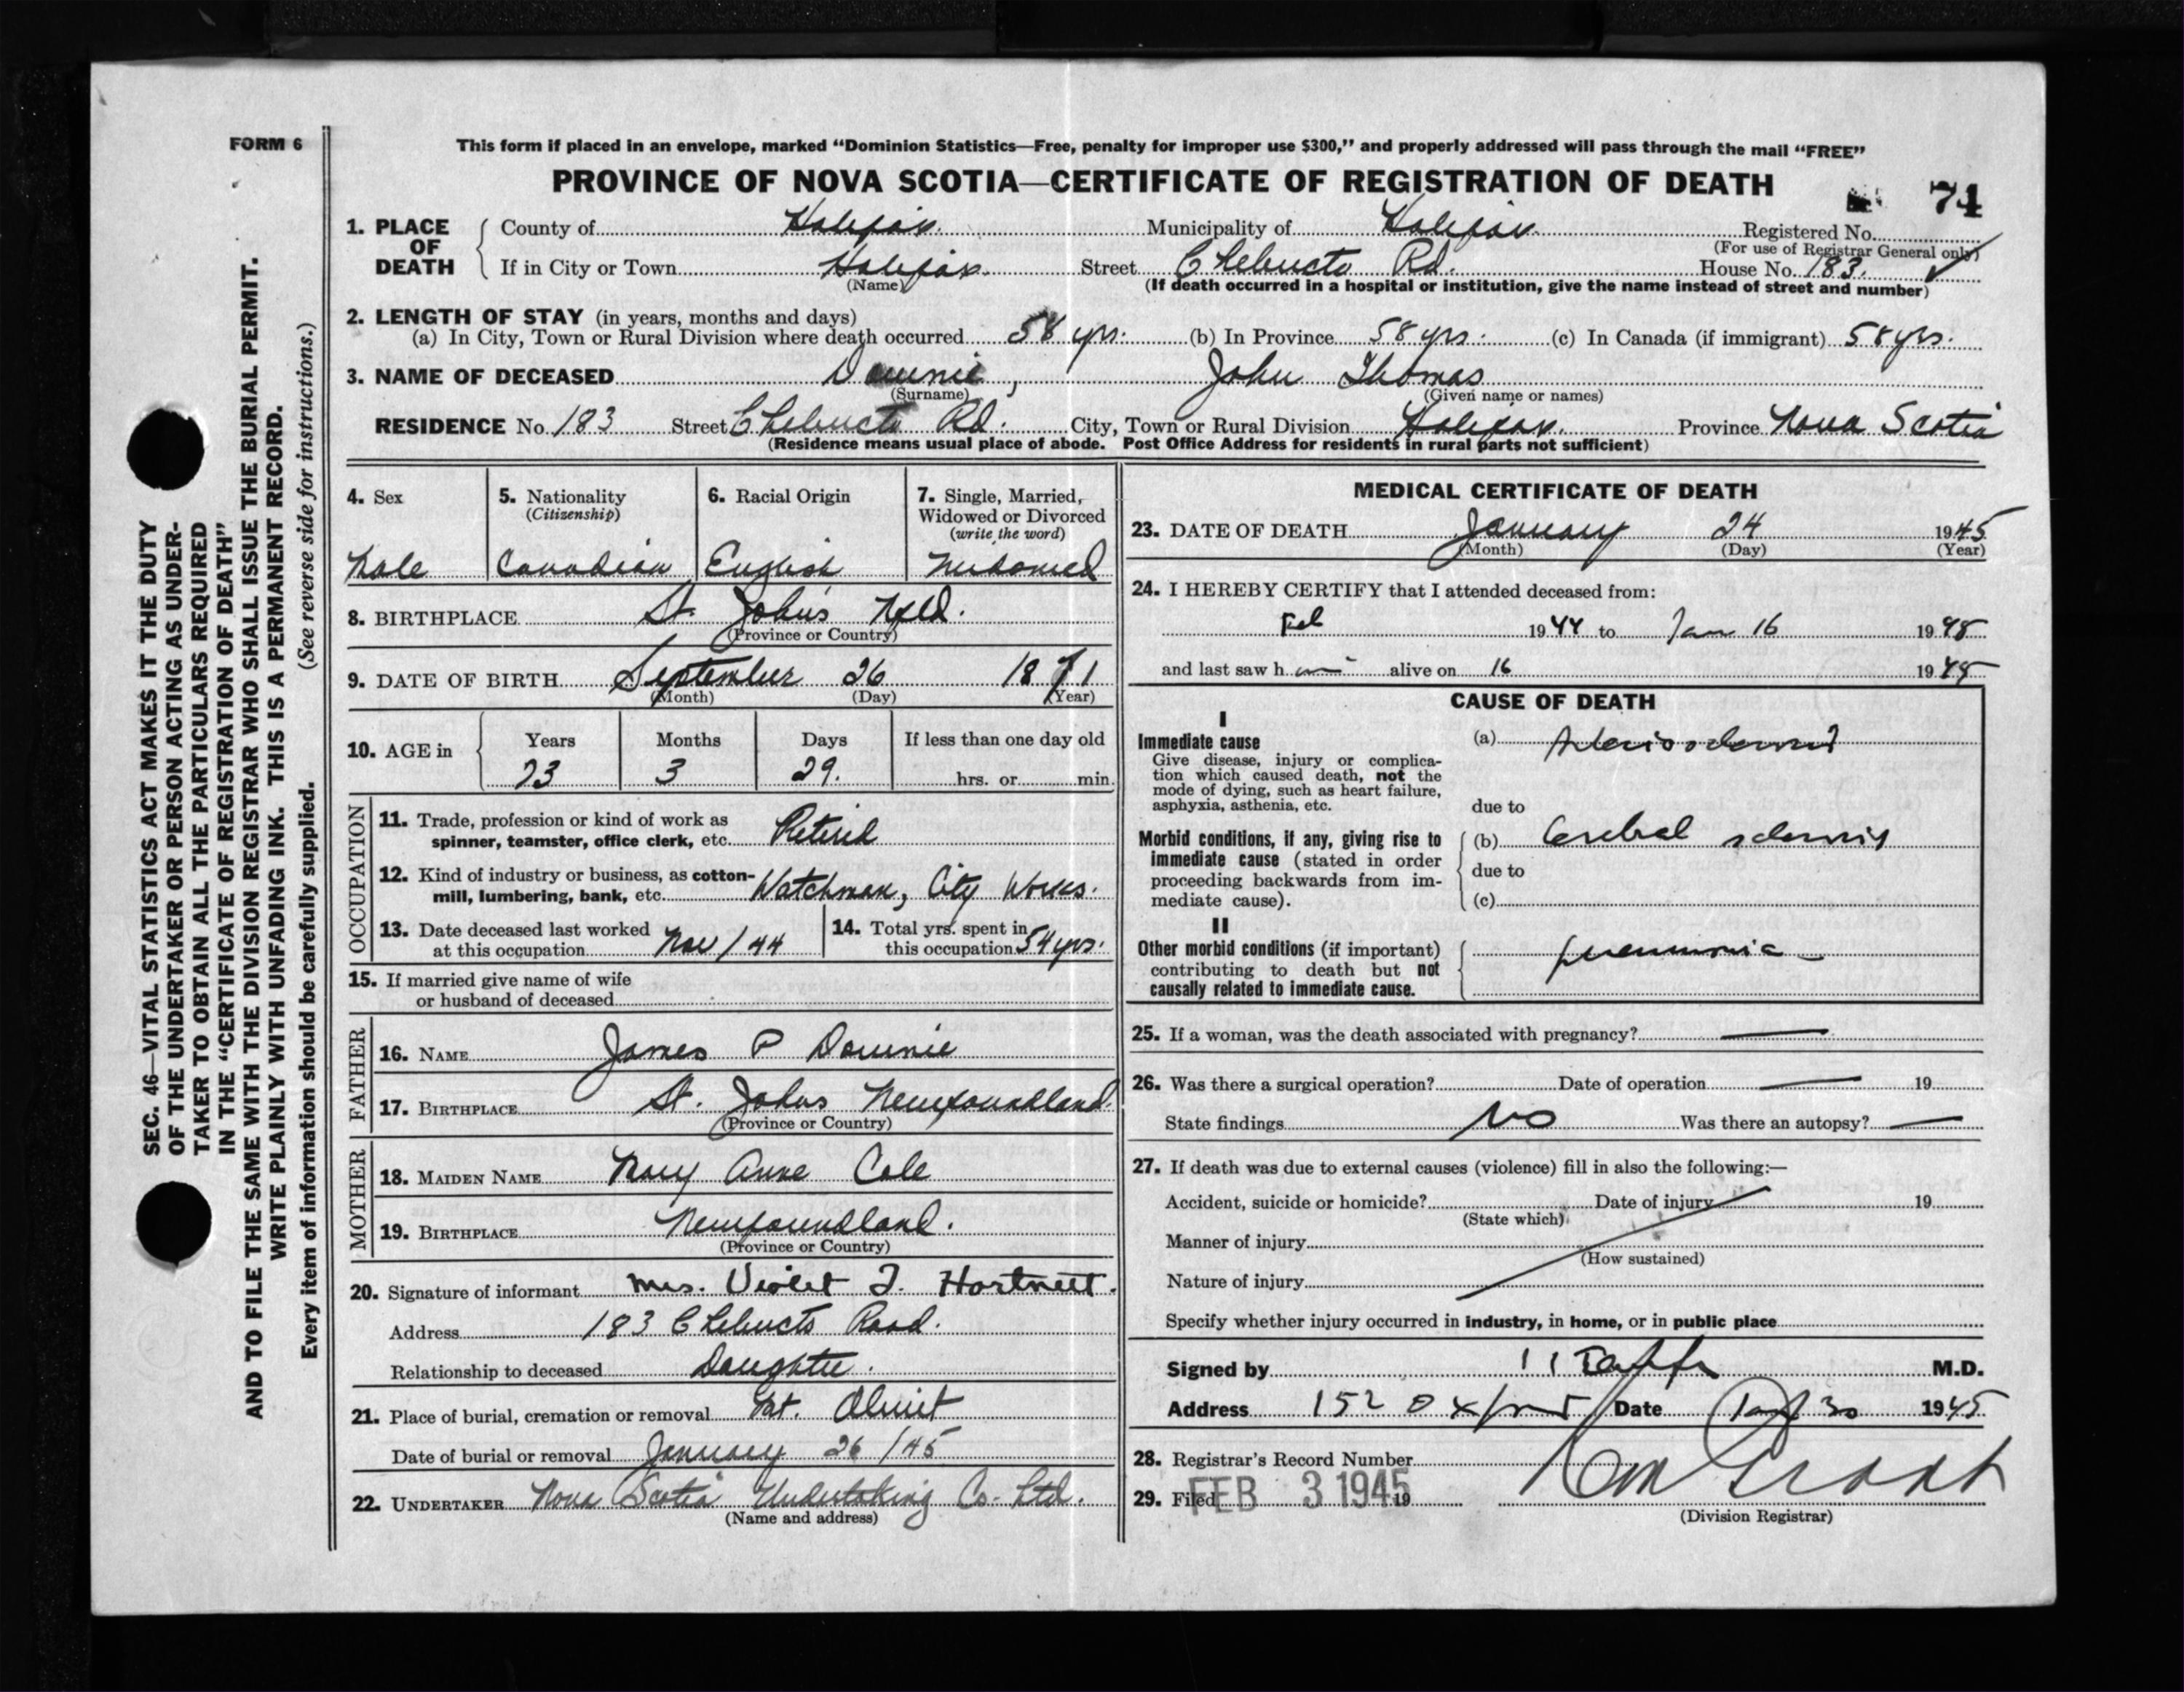 FORM 6
This form if placed in an envelope, marked “Dominion Statistics—Free, penalty for improper use $300,” and properly addressed will pass through the mail “FREE”
PROVINCE OF NOVA SCOTIA—CERTIFICATE OF REGISTRATION OF DEATH
74
1. PLACE OF DEATH County of Halifax Municipality of Halifax Registered No.
(For use of Registrar General only)
If in City or Town Halifax Street Chebucto Rd. House No. 183.
(Name) (If death occurred in a hospital or institution, give the name instead of street and number)
2. LENGTH OF STAY (in years, months and days)
(a) In City, Town or Rural Division where death occurred 58 yrs. (b) In Province 58 yrs. (c) In Canada (if immigrant) 58 yrs.
3. NAME OF DECEASED John Thomas
(Surname) (Given name or names)
RESIDENCE No. 183 Street Chebucto Rd. City, Town or Rural Division Halifax. Province Nova Scotia
(Residence means usual place of abode. Post Office Address for residents in rural parts not sufficient)
4. Sex
Male
5. Nationality
(Citizenship)
Canadian
6. Racial Origin
English
7. Single, Married,
Widowed or Divorced
(write the word)
Widowed
8. BIRTHPLACE St. John's Nfld.
(Province or Country)
9. DATE OF BIRTH September 26 1871
(Month) (Day) (Year)
10. AGE in Years Months Days If less than one day old
73 3 29. hrs. or min.
OCCUPATION
11. Trade, profession or kind of work as
spinner, teamster, office clerk, etc. Retired
12. Kind of industry or business, as cotton-
mill, lumbering, bank, etc. Watchman, City Works.
13. Date deceased last worked
at this occupation Nov / 44
14. Total yrs. spent in
this occupation 54 yrs.
15. If married give name of wife
or husband of deceased
FATHER
16. NAME James P
17. BIRTHPLACE St. Johns Newfoundland
(Province or Country)
MOTHER
18. MAIDEN NAME Mary Anne Cole
19. BIRTHPLACE Newfoundland.
(Province or Country)
20. Signature of informant Mrs. Violet J. Hartnett.
Address 183 Chebucto Road.
Relationship to deceased Daughter.
21. Place of burial, cremation or removal Mt. Olivet
Date of burial or removal January 26 /45
22. UNDERTAKER Nova Scotia Undertaking Co. Ltd.
(Name and address)
MEDICAL CERTIFICATE OF DEATH
23. DATE OF DEATH January 24 1945
(Month) (Day) (Year)
24. I HEREBY CERTIFY that I attended deceased from:
Feb 1944 to Jan 16 1945
and last saw him alive on 16 1945
CAUSE OF DEATH
I
Immediate cause (a) Arteriosclerosis
Give disease, injury or complica-
tion which caused death, not the
mode of dying, such as heart failure,
asphyxia, asthenia, etc.
due to
Morbid conditions, if any, giving rise to
immediate cause (stated in order
proceeding backwards from im-
mediate cause).
(b) Cerebral sclerosis
due to
(c)
II
Other morbid conditions (if important)
contributing to death but not
causally related to immediate cause.
pneumonia
25. If a woman, was the death associated with pregnancy?
26. Was there a surgical operation? Date of operation 19
State findings No Was there an autopsy?
27. If death was due to external causes (violence) fill in also the following:—
Accident, suicide or homicide? Date of injury 19
(State which)
Manner of injury
(How sustained)
Nature of injury
Specify whether injury occurred in industry, in home, or in public place
Signed by M.D.
Address 152 Oxford Date Jan 30 1945
28. Registrar's Record Number
29. Filed FEB 3 1945 19
(Division Registrar)
SEC. 46—VITAL STATISTICS ACT MAKES IT THE DUTY
OF THE UNDERTAKER OR PERSON ACTING AS UNDER-
TAKER TO OBTAIN ALL THE PARTICULARS REQUIRED
IN THE “CERTIFICATE OF REGISTRATION OF DEATH”
AND TO FILE THE SAME WITH THE DIVISION REGISTRAR WHO SHALL ISSUE THE BURIAL PERMIT.
WRITE PLAINLY WITH UNFADING INK. THIS IS A PERMANENT RECORD.
Every item of information should be carefully supplied. (See reverse side for instructions.)